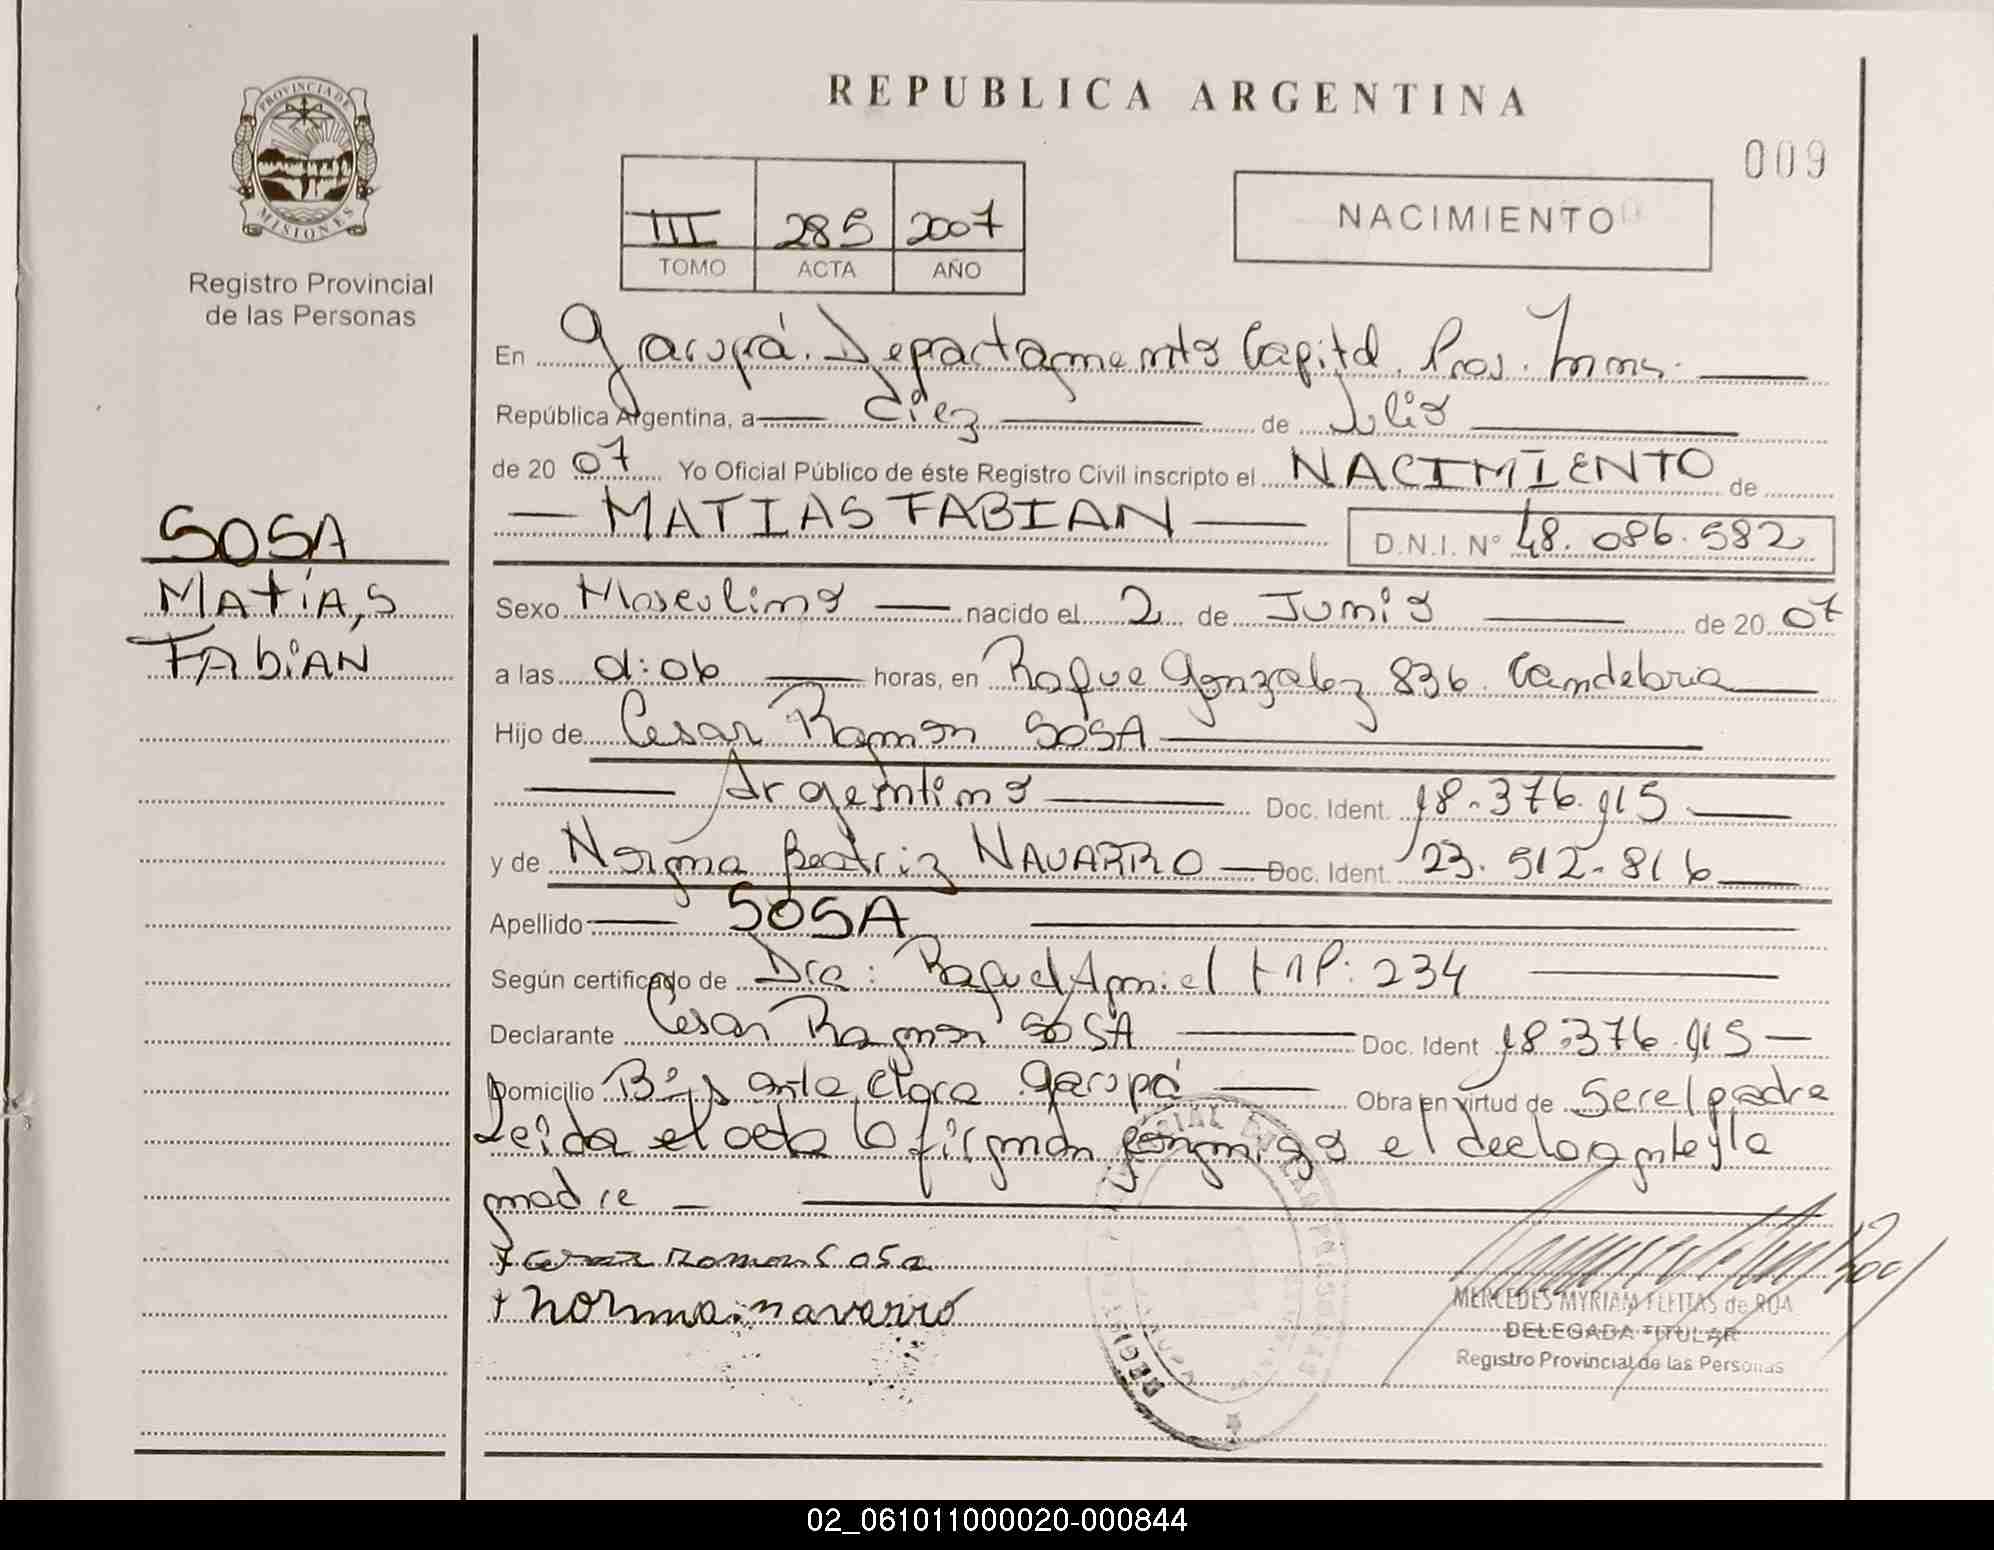 PROVINCIA DE
MISIONES
Registro Provincial
de las Personas
SOSA
Matías
Fabián
REPUBLICA ARGENTINA
009
III 285 2007
TOMO ACTA AÑO
NACIMIENTO
En Garupá. Departamento Capital. Pros. Mnes.
República Argentina, a diez de Julio
de 20 07 Yo Oficial Público de éste Registro Civil inscripto el NACIMIENTO de
MATIAS FABIAN D.N.I. N° 48.086.582
Sexo Masculino nacido el 2 de Junio de 20 07
a las horas, en Roque Gonzalez 836. Candelaria
Hijo de Cesar Ramon SOSA
Argentino Doc. Ident. 18.376.915
y de Norma Beatriz NAVARRO Doc. Ident. 23.512.816
Apellido SOSA
Según certificado de Dra: Raquel MP: 234
Declarante Cesar Ramon SOSA Doc. Ident 18.376.915
Domicilio B° Santa Clara Garupá Obra en virtud de Ser el padre
Leida el acta la firman conmigo el declarante y la
madre
Cesar Ramon Sosa
+ norma navarro
MERCEDES MYRIAM FLEITAS de ROA
DELEGADA TITULAR
Registro Provincial de las Personas
02_061011000020-000844